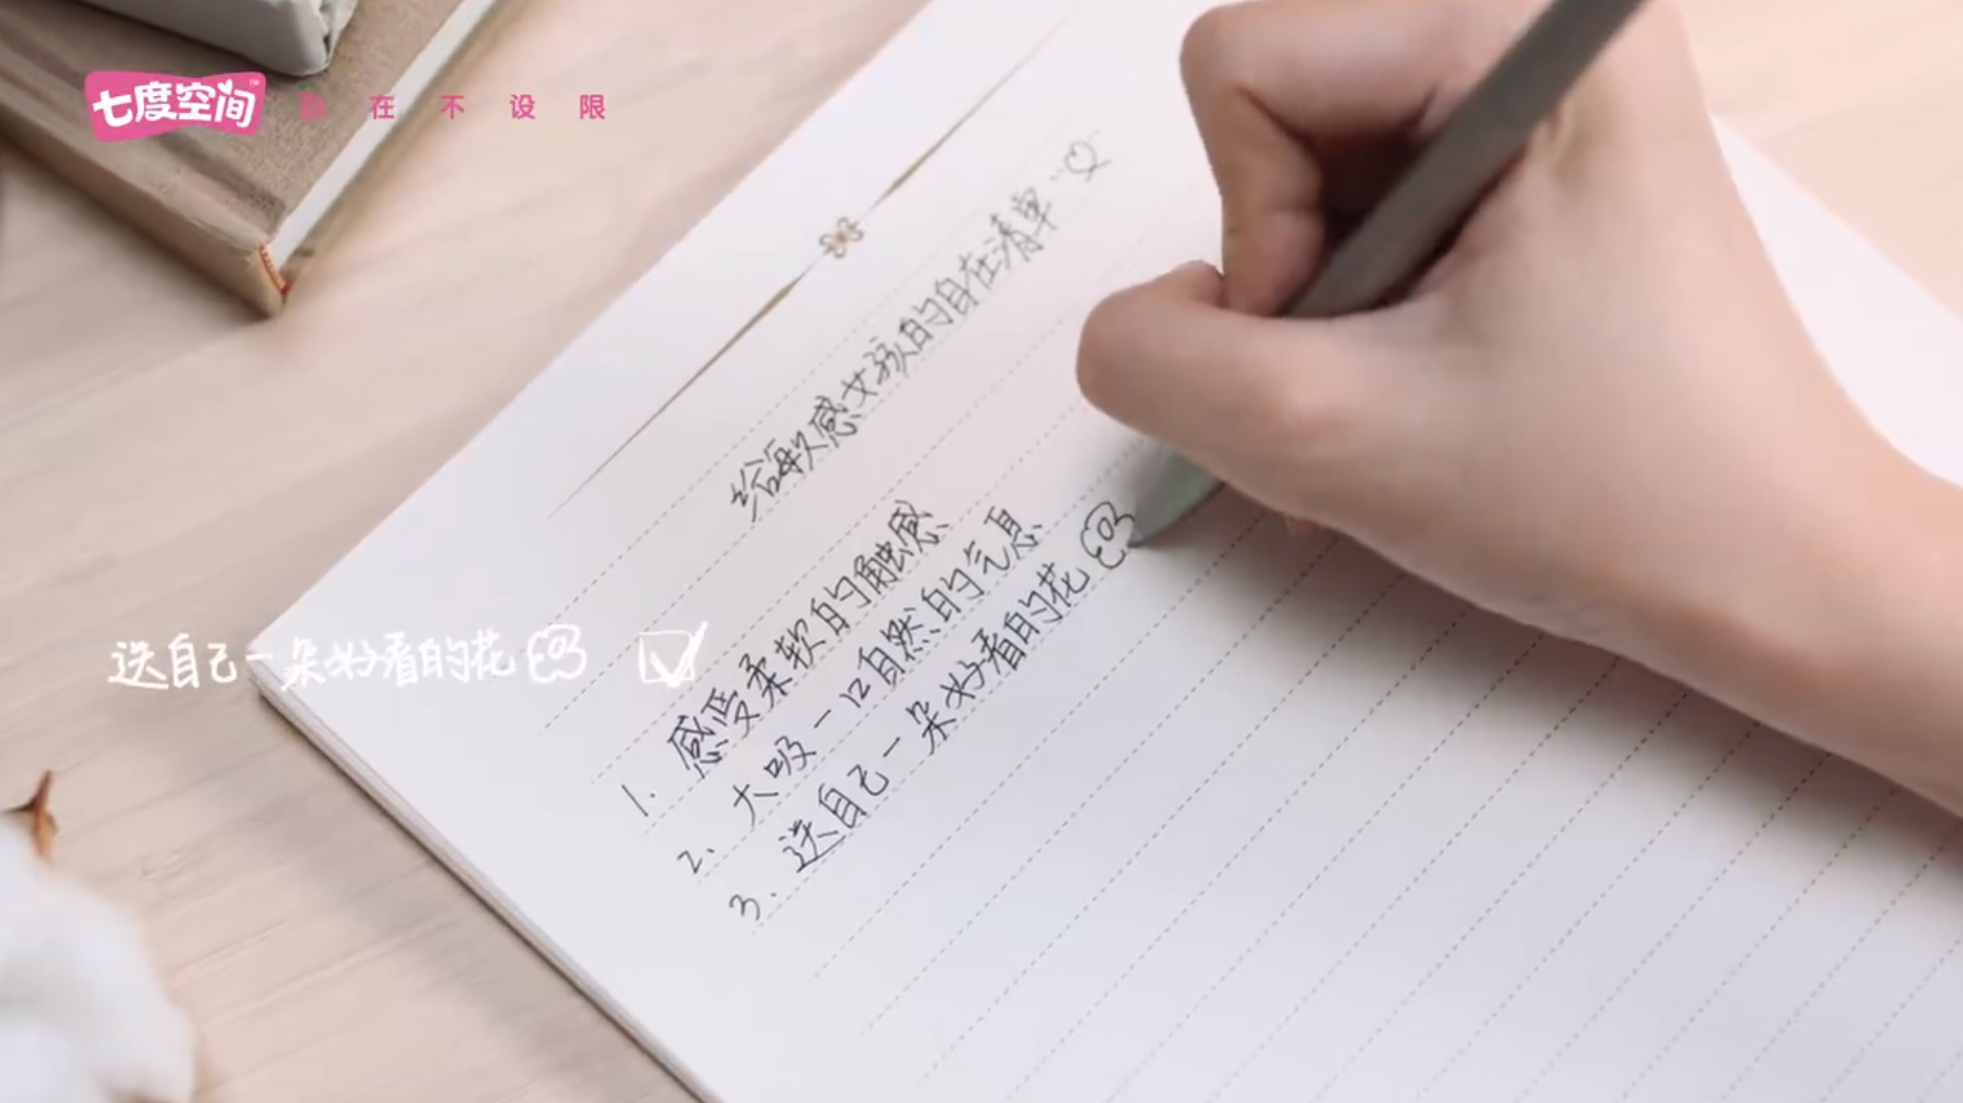 七度空间™
自在不设限
给敏感女孩的自在清单
1. 感受柔软的触感
2. 大吸一口自然的气息
3. 送自己一朵好看的花
送自己一朵好看的花